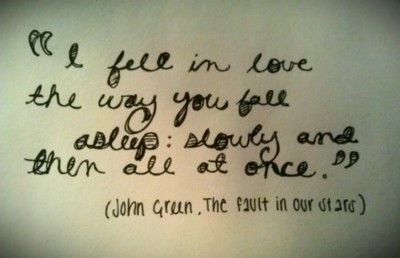 “I fell in love
the way you fall
asleep: slowly and
then all at once.”
(John Green, The Fault in our stars)